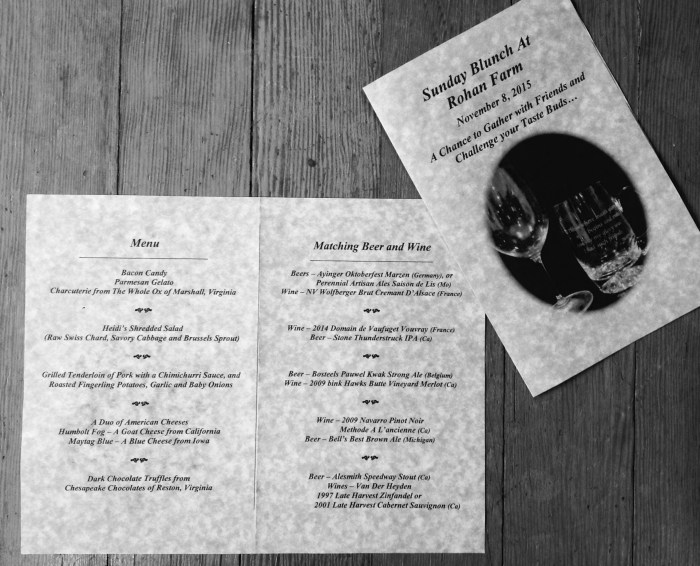 Sunday Blunch At
Rohan Farm
November 8, 2015
A Chance to Gather with Friends and
Challenge your Taste Buds…
Menu
Bacon Candy
Parmesan Gelato
Charcuterie from The Whole Ox of Marshall, Virginia
Heidi's Shredded Salad
(Raw Swiss Chard, Savory Cabbage and Brussels Sprout)
Grilled Tenderloin of Pork with a Chimichurri Sauce, and
Roasted Fingerling Potatoes, Garlic and Baby Onions
A Duo of American Cheeses
Humbolt Fog – A Goat Cheese from California
Maytag Blue – A Blue Cheese from Iowa
Dark Chocolate Truffles from
Chesapeake Chocolates of Reston, Virginia
Matching Beer and Wine
Beers – Ayinger Oktoberfest Marzen (Germany), or
Perennial Artisan Ales Saison de Lis (Mo)
Wine – NV Wolfberger Brut Cremant D'Alsace (France)
Wine – 2014 Domain de Vaufuget Vouvray (France)
Beer – Stone Thunderstruck IPA (Ca)
Beer – Bosteels Pauwel Kwak Strong Ale (Belgium)
Wine – 2009 bink Hawks Butte Vineyard Merlot (Ca)
Wine – 2009 Navarro Pinot Noir
Methode A L'ancienne (Ca)
Beer – Bell's Best Brown Ale (Michigan)
Beer – Alesmith Speedway Stout (Ca)
Wines – Van Der Heyden
1997 Late Harvest Zinfandel or
2001 Late Harvest Cabernet Sauvignon (Ca)